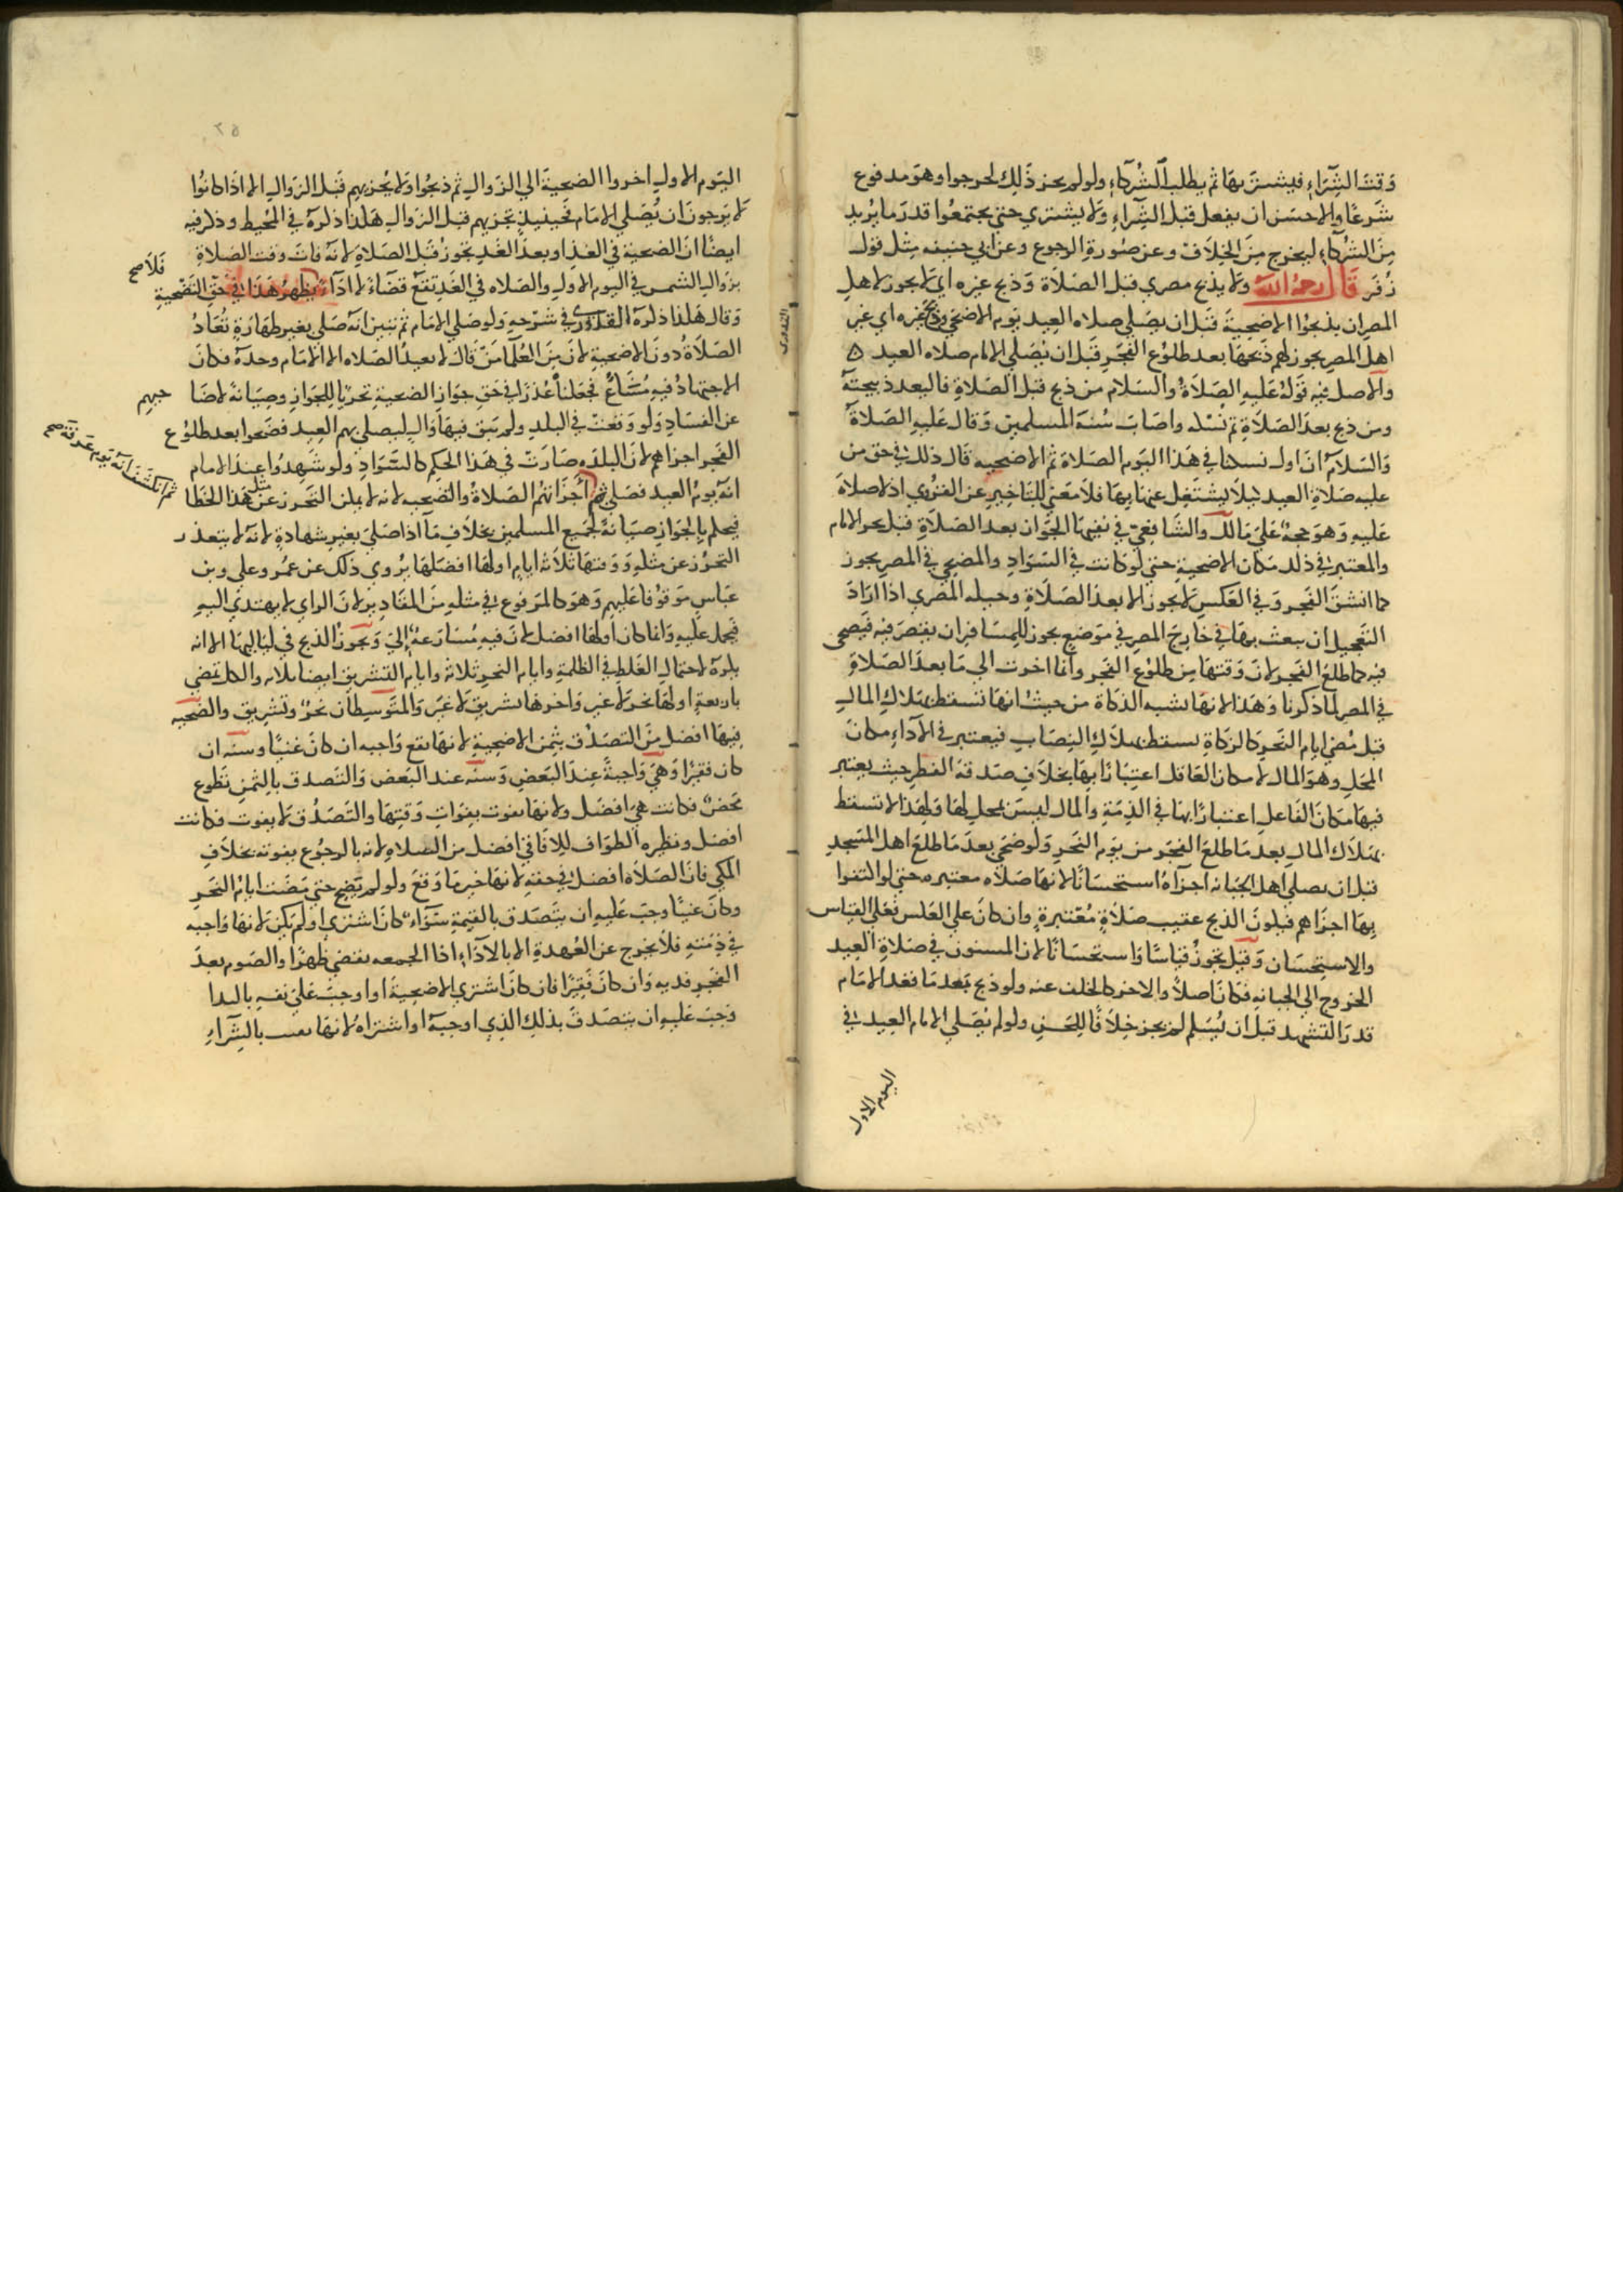 وَقت الشِّرَاءِ فيشتريها ثم يطلب الشُركآء ولو لم يجز ذَلِكَ لحرجوا وهوَ مدفوع
شرعًا والاحسَن ان يفعل قبل الشِراءِ وَلا يشتري حتى يجتمعُوا قدرَ ما يُريد
مِنَ الشركآءِ ليخرج مِنَ الخِلَاف وعن صُورةِ الرجوع وعن ابي حنيفه مِثل قول
زُفَر قَالَ رحمهُ الله وَلا يذبح مصري قبل الصلاة وَذبح غيره اي لا يجوز لاهل
المصر ان يذبحُوا الاضحِيةَ قَبل ان يصَلي صلاه العِيد يَوم الاضحي وذبح غيره اي غير
اهل المصر يجوز لهم ذَبحهَا بعد طلوُع الفَجرِ قَبل ان يُصَلي الامام صلاه العيد ه
والاصل فيه قَولهُ عَليهِ الصَلَاةُ والسَلام من ذبح قبل الصَلاةِ فاليعد ذبيحتهُ
ومن ذبح بعدَ الصَلَاةِ تم نسُكه واصَابَ سُنةَ المُسلمين وَقال عَليهِ الصَلاةُ
وَالسَلامُ انَ اول نسكنا في هَذا اليَوم الصَلاة ثم الاضحيه قالَ ذلك في حق من
عليه صَلاةِ العيد ليلَا يشتَغِل عنهَا بِهَا فلا مَعني للتاخِيرِ عن القرُوي اذ لا صلاةَ
عَليهِ وَهوَ حجةٌ عَليَ مَالك والشَافِعيّ في نفيهمَا الجَوَاز بعدَ الصَلَاةِ قبل نحر الامام
والمعتبر في ذلك مَكان الاضحيةِ حتي لَو كانت في السَوَادِ والمضحي في المصرِ يجوز
كما انشقَ الفَجر وَفي العَكسِ لا يجوز الا بعدَ الصَلَاةِ وحيله المصري اذَا ارَادَ
التَعجيل ان يبعث بِها في خَارج المصر في مَوضع يجوز للمسَافِر ان يقصَر فيه فيضحى
فيه كما طلعَ الفَجر لانَ وَقتهَا مِن طلوُعِ الفَجر وانما اخرت الي مَا بعدَ الصَلاةِ
في المصر لما ذكرنا وَهَذا لانهَا تشبه الزكاة من حيثُ انهَا تسقط بهلَاكِ المال
قبل مُضي ايام النحَرِ كالزكاةِ تسقط بهلاكِ النِصَابِ فيعتبر في الادَاءِ مَكانَ
المحَلِ وهوَ المال لا مكان الفاعل اعتِبَارًا بِهَا بخلَافِ صَدقة الفطرِ حيث يعتبر
فيهَا مَكانَ الفَاعلِ اعتبارًا بهَا في الذمَةِ والمال ليسَ بمحلٍ لهَا وَلهَذا لا تسقط
بهَلاك المالِ بعد مَا طلعَ الفجر من يَوم النَحر وَلو ضحَي بعدَ مَا طلعَ اهل المَسجدِ
قبل ان يصلي اهل الجبانه اجزأهُ استحسَانًا لانهَا صَلاه معتبره حتي لو اكتفوا
بِهَا اجزَاهم فيكون الذبح عقيب صَلاةٍ مُعتبرةٍ وان كانَ علي العكس فعَلي القياس
والاستحِسَان وَقيل يجَوزُ قياسًا وَاستحسَانًا لان المسنون في صَلاةِ العِيد
الخروج الي الجبانهِ فكانَ اصلاً والاخر كالخلف عنه ولو ذبح بَعد مَا قعَد الامَام
قدرَ التشهد قبل ان يُسَلم لم يجز خِلَافًا للِحَسَن ولو لم يُصَلي الامَام العِيد في
اليوم الاول
اليَوم الاول اخروا الضحيةَ الي الزَوال ثم ذبحُوا وَلا يُجزيهم قَبل الزوال الا اذَا كانوُا
لا يَرجونَ ان يُصَلي الامَام فحينيذٍ تجزيهم قبل الزوال هَكذا ذكرهُ في المحُيط وذكر فيه
ايضًا انَ الضحيةَ في الغدِ او بعدَ الغَدِ تجُوز قَبل الصَلاةِ لانهُ فاتَ وقت الصَلاةِ
بزوَال الشَمس في اليوم الاول والصَلاه في الغَد تقعَ قضآءً لا ادَآءً يظهرُ هَذَا في حَقِ التَضحيةِ
فَلا صح
وَقال هَكذا ذكرهُ القدُوري في شَرحِهِ وَلو صَلي الامَام ثم تبين انهُ صَلي بغيرِ طَهَارةٍ تُعَادُ
القدورى
الصَلَاةُ دونَ الاضحيةِ لانَ مِنَ العُلَمَا مَن قالَ لا يعيدُ الصَلاه الا الامَام وحدهُ فكانَ
الاجتهَادُ فيهِ مُسَاغٌ فجَعلنَاهُ عُذرًا في حَقِ جوَاز الضحيةِ تحريًا للِجَوازِ وصِيَانةً لاضَا
حيهم
عن الفسَادِ وَلو وَقعت في البلدِ ولم يبَق فيهَا وَالٍ ليصلي بهم العِيد فضَحوا بعد طلوُع
الفَجر اجزَاهم لانَ البلدَه صَارَتْ في هَذا الحكِم كالسَوَادِ ولَو شَهِدُوا عِندَ الامام
انهُ يَومُ العيد فصَلي ثم اَجزأتهُم الصَلاةُ والضحيه لانه لا يمكن التَحرز عن مثل هَذا الخَطا
ثم انكشَفَ انَه يَوم عَرَفة صح
فيحكم بِالجَوازِ صيَانةً لجَميعِ المسلمين بخلافِ مَا اذا صَلي بغيرِ شهادةٍ لانهُ لا يتعذر
التحرُز عن مثلهِ وَوَقتهَا ثلَاثه ايامٍ اولهَا افضَلهَا يرُوي ذَلك عن عُمرُ وعلي وبن
عبَاس مَوقوُفًا عَليهم وَهوَ كالمَرفوع في مثلهِ منَ المقَاديرِ لانَ الراي لا يهتدَي اليهِ
فيحمل عليهِ وانما كان اولهَا افضل لانَ فيهِ مُسَارعَةٌ اليَ وَيجوزُ الذبح في ليَاليهَا الا انه
يكرهَ لاحتمال الغَلطِ في الظلمَةِ وايام النحرِ ثلَاثه وايام التشرِيق ايضا ثلاثه والكل تمضي
باربعةٍ اولهَا نحرٌ لا غير وَاخرهَا تشريق لا غير وَالمتَوسِطَان نحرٌ وتشرِيق والضحيه
فيهَا افضل منَ التَصدُق بثمنِ الاضحِيةِ لانهَا تقع وَاجبه ان كانَ غنيًا وسنه ان
كان فقيرًا وَهيَ وَاجبةً عِندَ البَعض وَسنه عند البَعض وَالتصدق بالثَمنِ تَطوع
محضٌ فكانت هيَ افضل ولانهَا تفوت بفوَاتِ وَقتهَا والتَصَدُق لا يفوت فكانت
افضل ونظيره الطوَاف للِافَاقي افضل من الصلاةِ لانه بالرجوُع يفوته بخلَافِ
المكي فانَ الصَلاة افضل في حقهِ لانهَا خير مَا وَقعَ ولو لم يَضح حتي مَضَت ايامُ النَحر
وكانَ غنيًا وجبَ عَليهِ ان يتصَدق بالقيمَةِ سَوَآءٌ كانَ اشتري او لم يكن لانهَا وَاجبه
في ذمَتهِ فلا يخرج عن العُهدةِ الا بالادَآءِ اذَا الجمعه تقضي ظهرًا والصَوم بعدَ
العَجز فديه وَان كانَ فَقيرًا فان كانَ اشتري الاضحِيةَ او اوجبَ عَليَ نفسِهِ بالنذا
وَجبَ عَليهِ ان يتصَدقَ بذلك الَذي اوجبهُ او اشتراهُ لانهَا تعينت بالشِراءِ